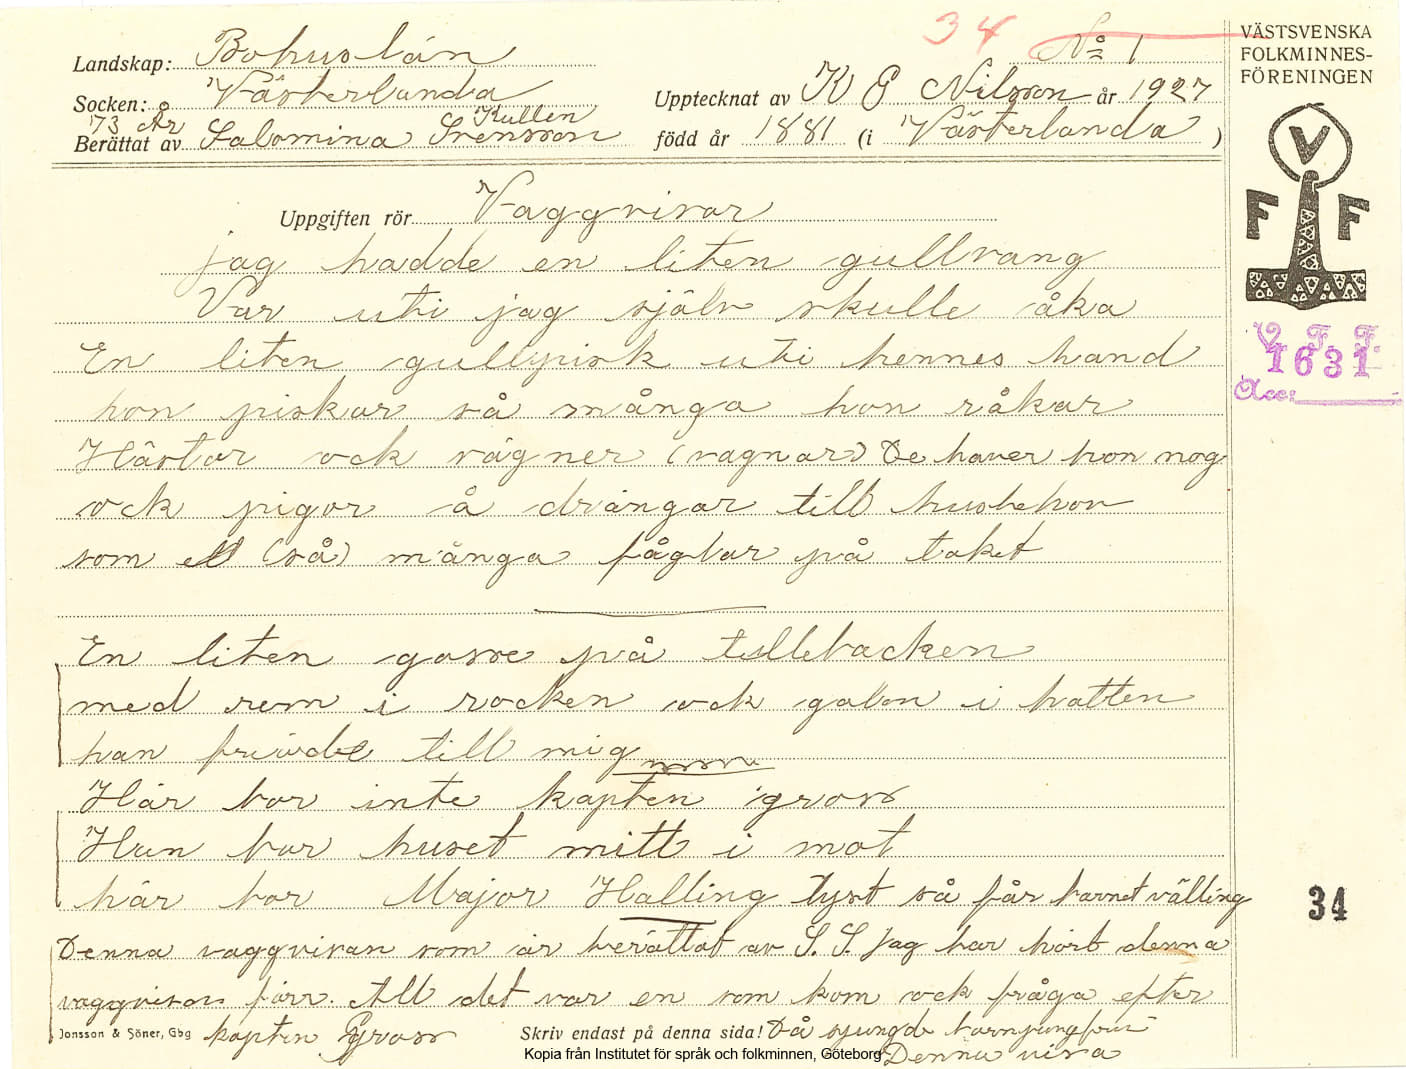 34 No 1
VÄSTSVENSKA
FOLKMINNES-
FÖRENINGEN
Landskap: Bohuslän
Socken: Västerlanda
Upptecknat av K G Nilsson år 1927
73 År Kullen
Berättat av Salomina Svensson född år 1881 (i Västerlanda )
V
F F
Uppgiften rör Vaggvisor
jag hadde en liten gullvang
Var uti jag själv skulle åka
En liten gullpisk uti hennes hand
hon piskar så många hon råkar
Hästar ock vägner (vagnar) De haver hon nog
ock pigor å drängar till husbehov
som ett (så) många fåglar på taket
V. F. F.
1631
Acc:
En liten gosse på tullebacken
med rem i rocken ock galon i hatten
han friade till mig
Här bor inte kapten gross
Han bor huset mitt i mot
här bor Major Halling tyst så får barnet välling
34
Denna vaggvisan som är berättat av S. S. jag har hört denna
vaggvisan förr. All det var en som kom ock fråga efter
Jonsson & Söner, Gbg kapten Gross Skriv endast på denna sida! Då sjungde barnjungfrun
Denna visa
Kopia från Institutet för språk och folkminnen, Göteborg